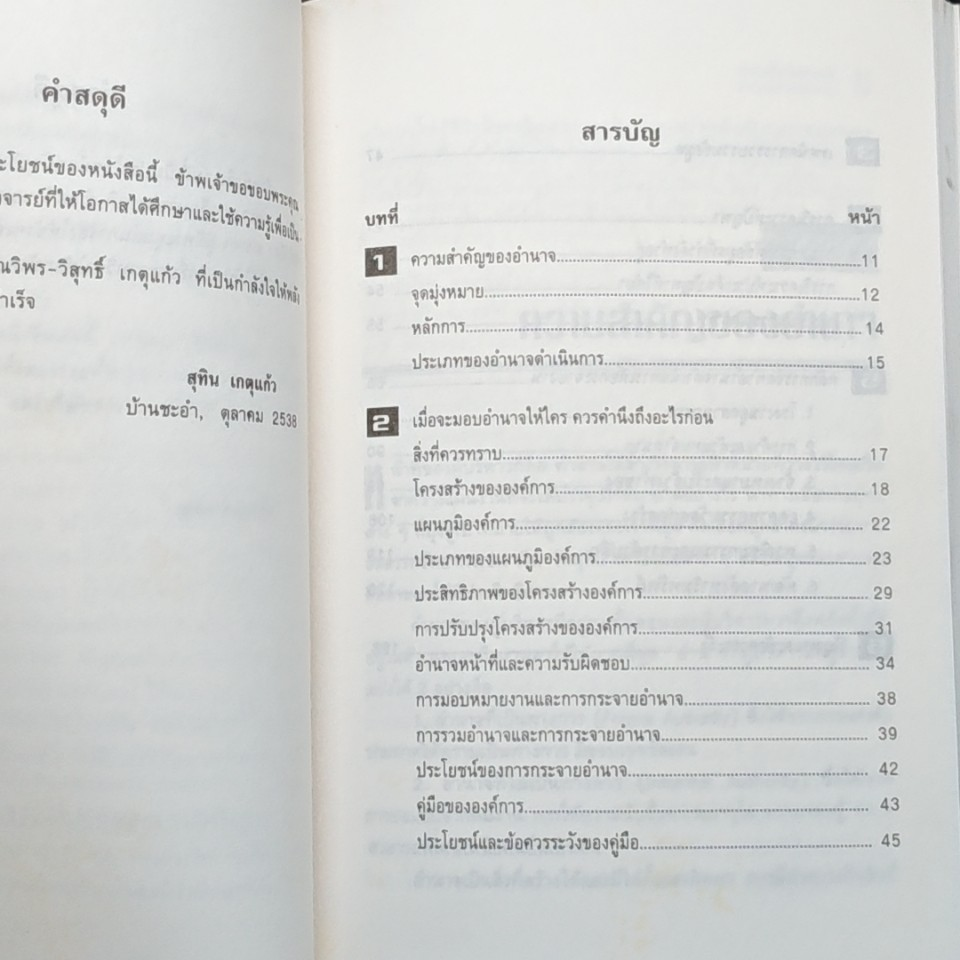 คำสดุดี
ะโยชน์ของหนังสือนี้ ข้าพเจ้าขอขอบพระคุณ
จารย์ที่ให้โอกาสได้ศึกษาและใช้ความรู้เพื่อเป็น
ณวิพร-วิสุทธิ์ เกตุแก้ว ที่เป็นกำลังใจให้หลัง
าเร็จ
สุทิน เกตุแก้ว
บ้านชะอำ, ตุลาคม 2538
สารบัญ
บทที่ หน้า
1 ความสำคัญของอำนาจ 11
จุดมุ่งหมาย 12
หลักการ 14
ประเภทของอำนาจดำเนินการ 15
2 เมื่อจะมอบอำนาจให้ใคร ควรคำนึงถึงอะไรก่อน
สิ่งที่ควรทราบ 17
โครงสร้างขององค์การ 18
แผนภูมิองค์การ 22
ประเภทของแผนภูมิองค์การ 23
ประสิทธิภาพของโครงสร้างองค์การ 29
การปรับปรุงโครงสร้างขององค์การ 31
อำนาจหน้าที่และความรับผิดชอบ 34
การมอบหมายงานและการกระจายอำนาจ 38
การรวมอำนาจและการกระจายอำนาจ 39
ประโยชน์ของการกระจายอำนาจ 42
คู่มือขององค์การ 43
ประโยชน์และข้อควรระวังของคู่มือ 45